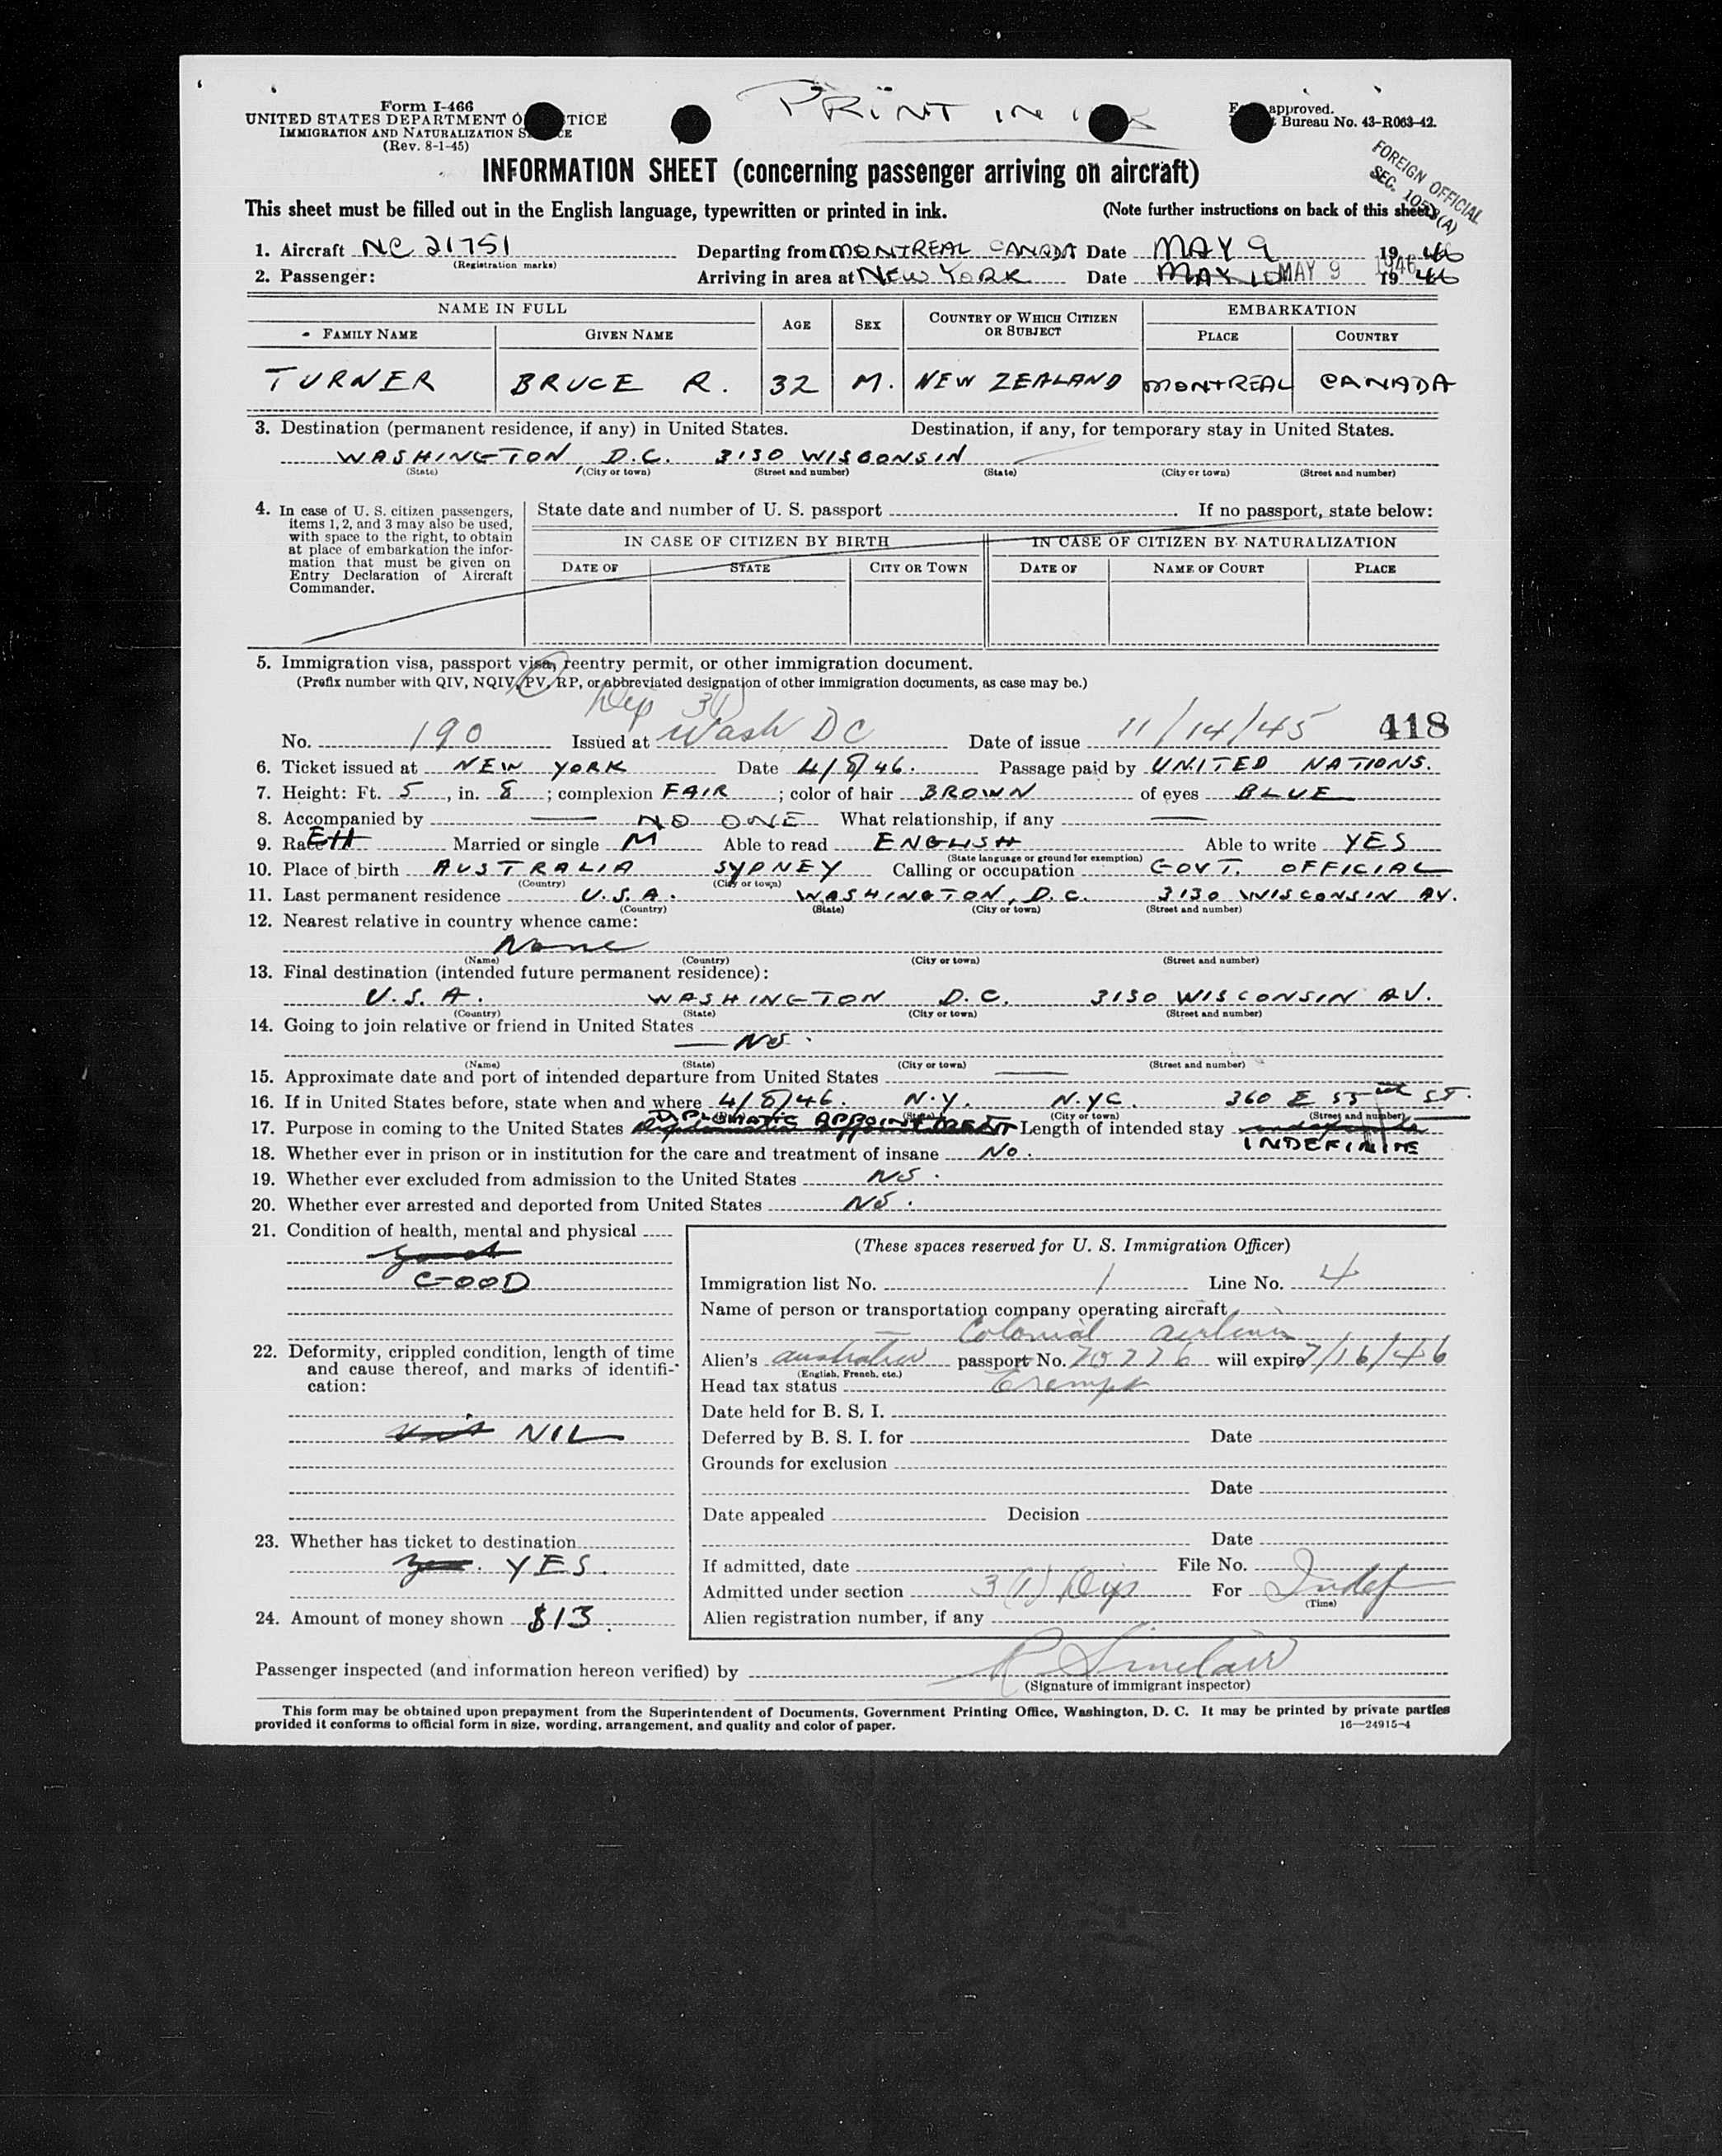 PRINT IN
Form I-466
UNITED STATES DEPARTMENT O TICE
IMMIGRATION AND NATURALIZATION S E
(Rev. 8-1-45)
F approved.
t Bureau No. 43-R063-42.
FOREIGN OFFICIAL
SEC. (A)
INFORMATION SHEET (concerning passenger arriving on aircraft)
This sheet must be filled out in the English language, typewritten or printed in ink. (Note further instructions on back of this sheet)
1. Aircraft NC 21751 Departing from MONTREAL CANADA Date MAY 9 1946
(Registration marks)
2. Passenger: Arriving in area at NEW YORK Date MAY 10 MAY 9 1946 1946
NAME IN FULL AGE SEX COUNTRY OF WHICH CITIZEN OR SUBJECT EMBARKATION
FAMILY NAME GIVEN NAME PLACE COUNTRY
TURNER BRUCE R. 32 M. NEW ZEALAND MONTREAL CANADA
3. Destination (permanent residence, if any) in United States. Destination, if any, for temporary stay in United States.
WASHINGTON, D.C. 3130 WISCONSIN
(State) (City or town) (Street and number) (State) (City or town) (Street and number)
4. In case of U. S. citizen passengers,
items 1, 2, and 3 may also be used,
with space to the right, to obtain
at place of embarkation the infor-
mation that must be given on
Entry Declaration of Aircraft
Commander.
State date and number of U. S. passport If no passport, state below:
IN CASE OF CITIZEN BY BIRTH IN CASE OF CITIZEN BY NATURALIZATION
DATE OF STATE CITY OR TOWN DATE OF NAME OF COURT PLACE
5. Immigration visa, passport visa, reentry permit, or other immigration document.
(Prefix number with QIV, NQIV, PV, RP, or abbreviated designation of other immigration documents, as case may be.)
Dip 3(1)
No. 190 Issued at Wash DC Date of issue 11/14/45 418
6. Ticket issued at NEW YORK Date 4/8/46. Passage paid by UNITED NATIONS.
7. Height: Ft. 5, in. 8; complexion FAIR; color of hair BROWN of eyes BLUE
8. Accompanied by NO ONE What relationship, if any —
9. Race Married or single M Able to read ENGLISH Able to write YES
(State language or ground for exemption)
10. Place of birth AUSTRALIA SYDNEY Calling or occupation GOVT. OFFICIAL
(Country) (City or town)
11. Last permanent residence U.S.A. WASHINGTON, D.C. 3130 WISCONSIN AV.
(Country) (State) (City or town) (Street and number)
12. Nearest relative in country whence came:
None
(Name) (Country) (City or town) (Street and number)
13. Final destination (intended future permanent residence):
U.S.A. WASHINGTON D.C. 3130 WISCONSIN AV.
(Country) (State) (City or town) (Street and number)
14. Going to join relative or friend in United States
— NO.
(Name) (State) (City or town) (Street and number)
15. Approximate date and port of intended departure from United States —
16. If in United States before, state when and where 4/8/46. N.Y. N.Y.C. 360 E 55th ST.
(State) (City or town) (Street and number)
17. Purpose in coming to the United States DIPLOMATIC APPOINTMENT Length of intended stay indefinite
INDEFINITE
18. Whether ever in prison or in institution for the care and treatment of insane No.
19. Whether ever excluded from admission to the United States NO.
20. Whether ever arrested and deported from United States NO.
21. Condition of health, mental and physical
good
GOOD
22. Deformity, crippled condition, length of time
and cause thereof, and marks of identifi-
cation:
NIL
23. Whether has ticket to destination
YES.
24. Amount of money shown $13.
(These spaces reserved for U. S. Immigration Officer)
Immigration list No. 1 Line No. 4
Name of person or transportation company operating aircraft
Colonial Airlines
Alien's passport No. 70776 will expire 7/16/46
(English, French, etc.)
Head tax status Exempt
Date held for B. S. I.
Deferred by B. S. I. for Date
Grounds for exclusion
Date
Date appealed Decision
Date
If admitted, date File No.
Admitted under section 3(1) Dip For Indef
(Time)
Alien registration number, if any
Passenger inspected (and information hereon verified) by R Sinclair
(Signature of immigrant inspector)
This form may be obtained upon prepayment from the Superintendent of Documents, Government Printing Office, Washington, D. C. It may be printed by private parties
provided it conforms to official form in size, wording, arrangement, and quality and color of paper. 16—24915-4